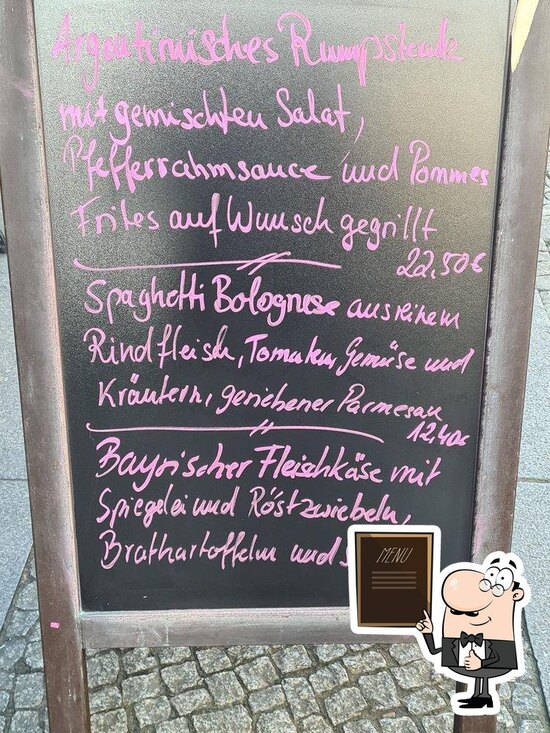 Argentinisches Rumpsteak
mit gemischten Salat,
Pfefferrahmsauce und Pommes
Frites auf Wunsch gegrillt
22,50€
Spaghetti Bolognese aus reinem
Rindfleisch, Tomaten, Gemüse und
Kräutern, geriebener Parmesan
12,40€
Bayrischer Fleischkäse mit
Spiegelei und Röstzwiebeln,
Bratkartoffeln und
MENU